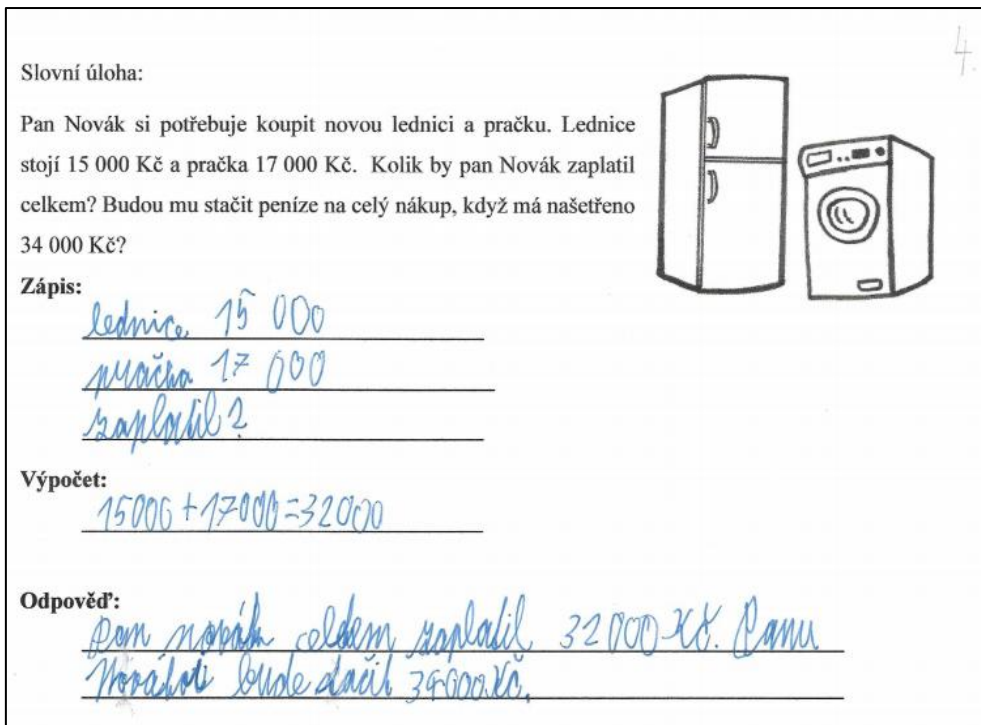 4.
Slovní úloha:
Pan Novák si potřebuje koupit novou lednici a pračku. Lednice
stojí 15 000 Kč a pračka 17 000 Kč. Kolik by pan Novák zaplatil
celkem? Budou mu stačit peníze na celý nákup, když má našetřeno
34 000 Kč?
Zápis:
lednice 15 000
pračka 17 000
zaplatil ?
Výpočet:
15000 + 17000 = 32000
Odpověď:
Pan novák celkem zaplatil 32 000 Kč. Panu
Novákovi bude stačit 34 000 Kč.